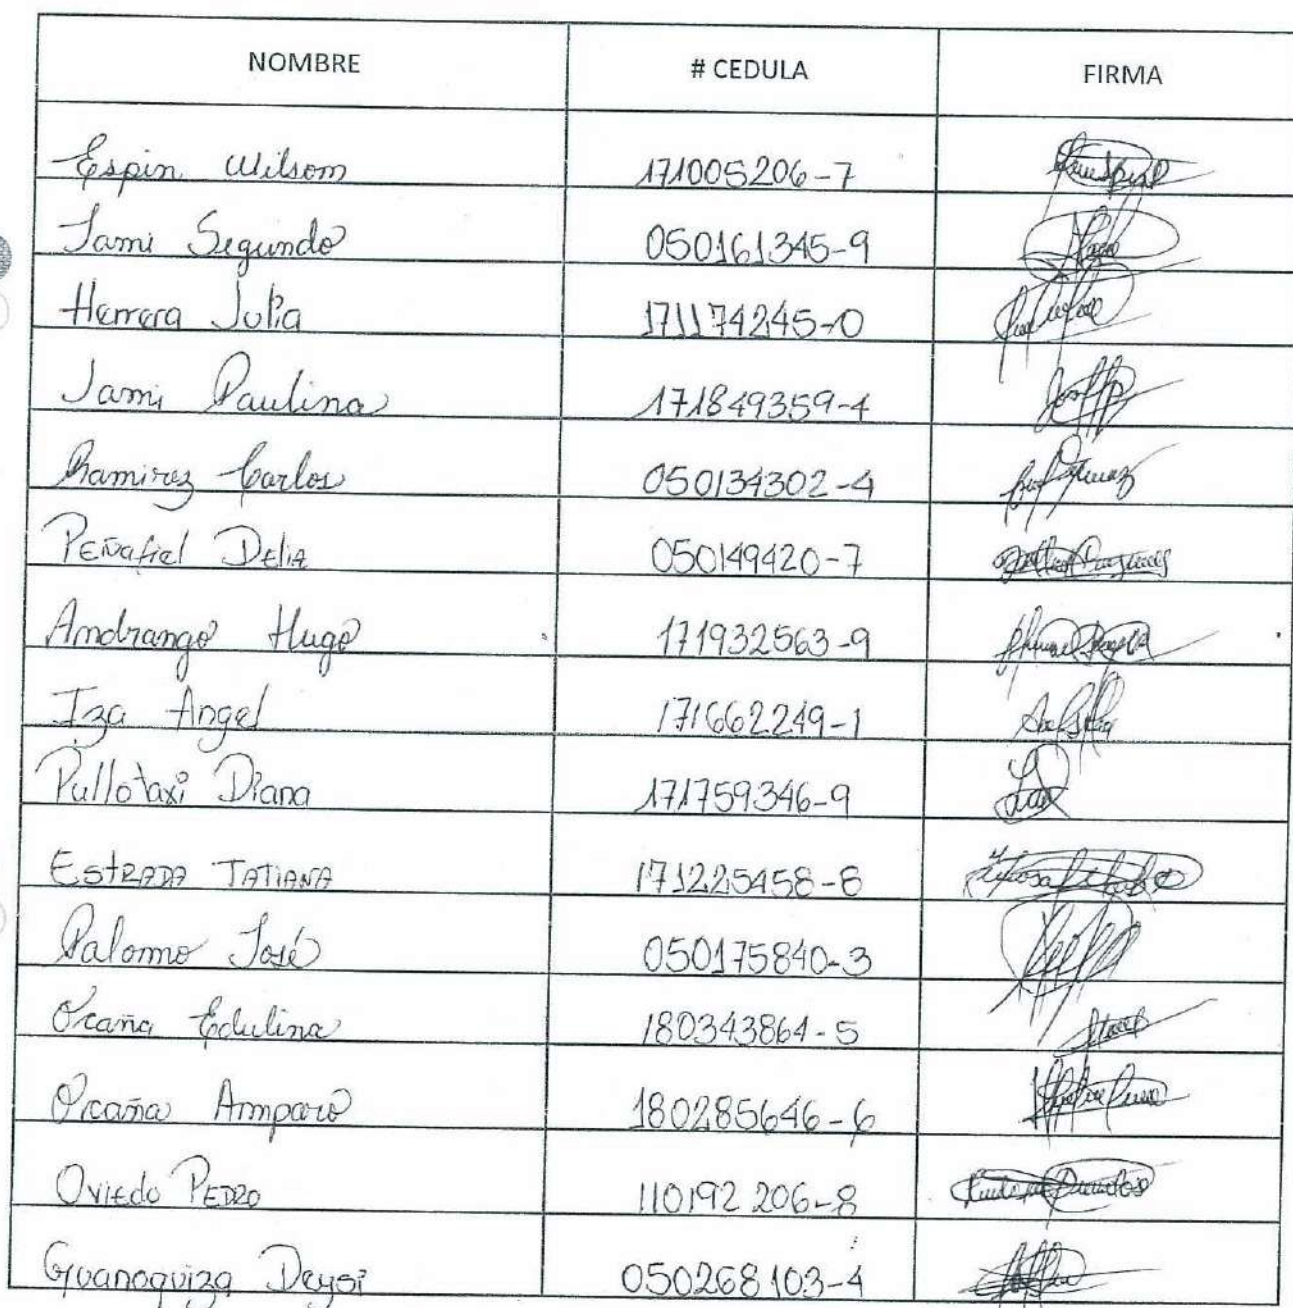 NOMBRE # CEDULA FIRMA
Espin Wilson 171005206-7
Jami Segundo 050161345-9
Herrera Julia 171174245-0
Jami Paulina 171849359-4
Ramirez Carlos 050134302-4
Peñafiel Delia 050149420-7
Andrango Hugo 171932563-9
Iza Angel 171662249-1
Pullotaxi Diana 171759346-9
ESTRADA TATIANA 171225458-8
Palomo José 050175840-3
Ocaña Edulina 180343864-5
Ocaña Amparo 180285646-6
Oviedo PEDRO 110192206-8
Guanoquiza Deysi 050268103-4